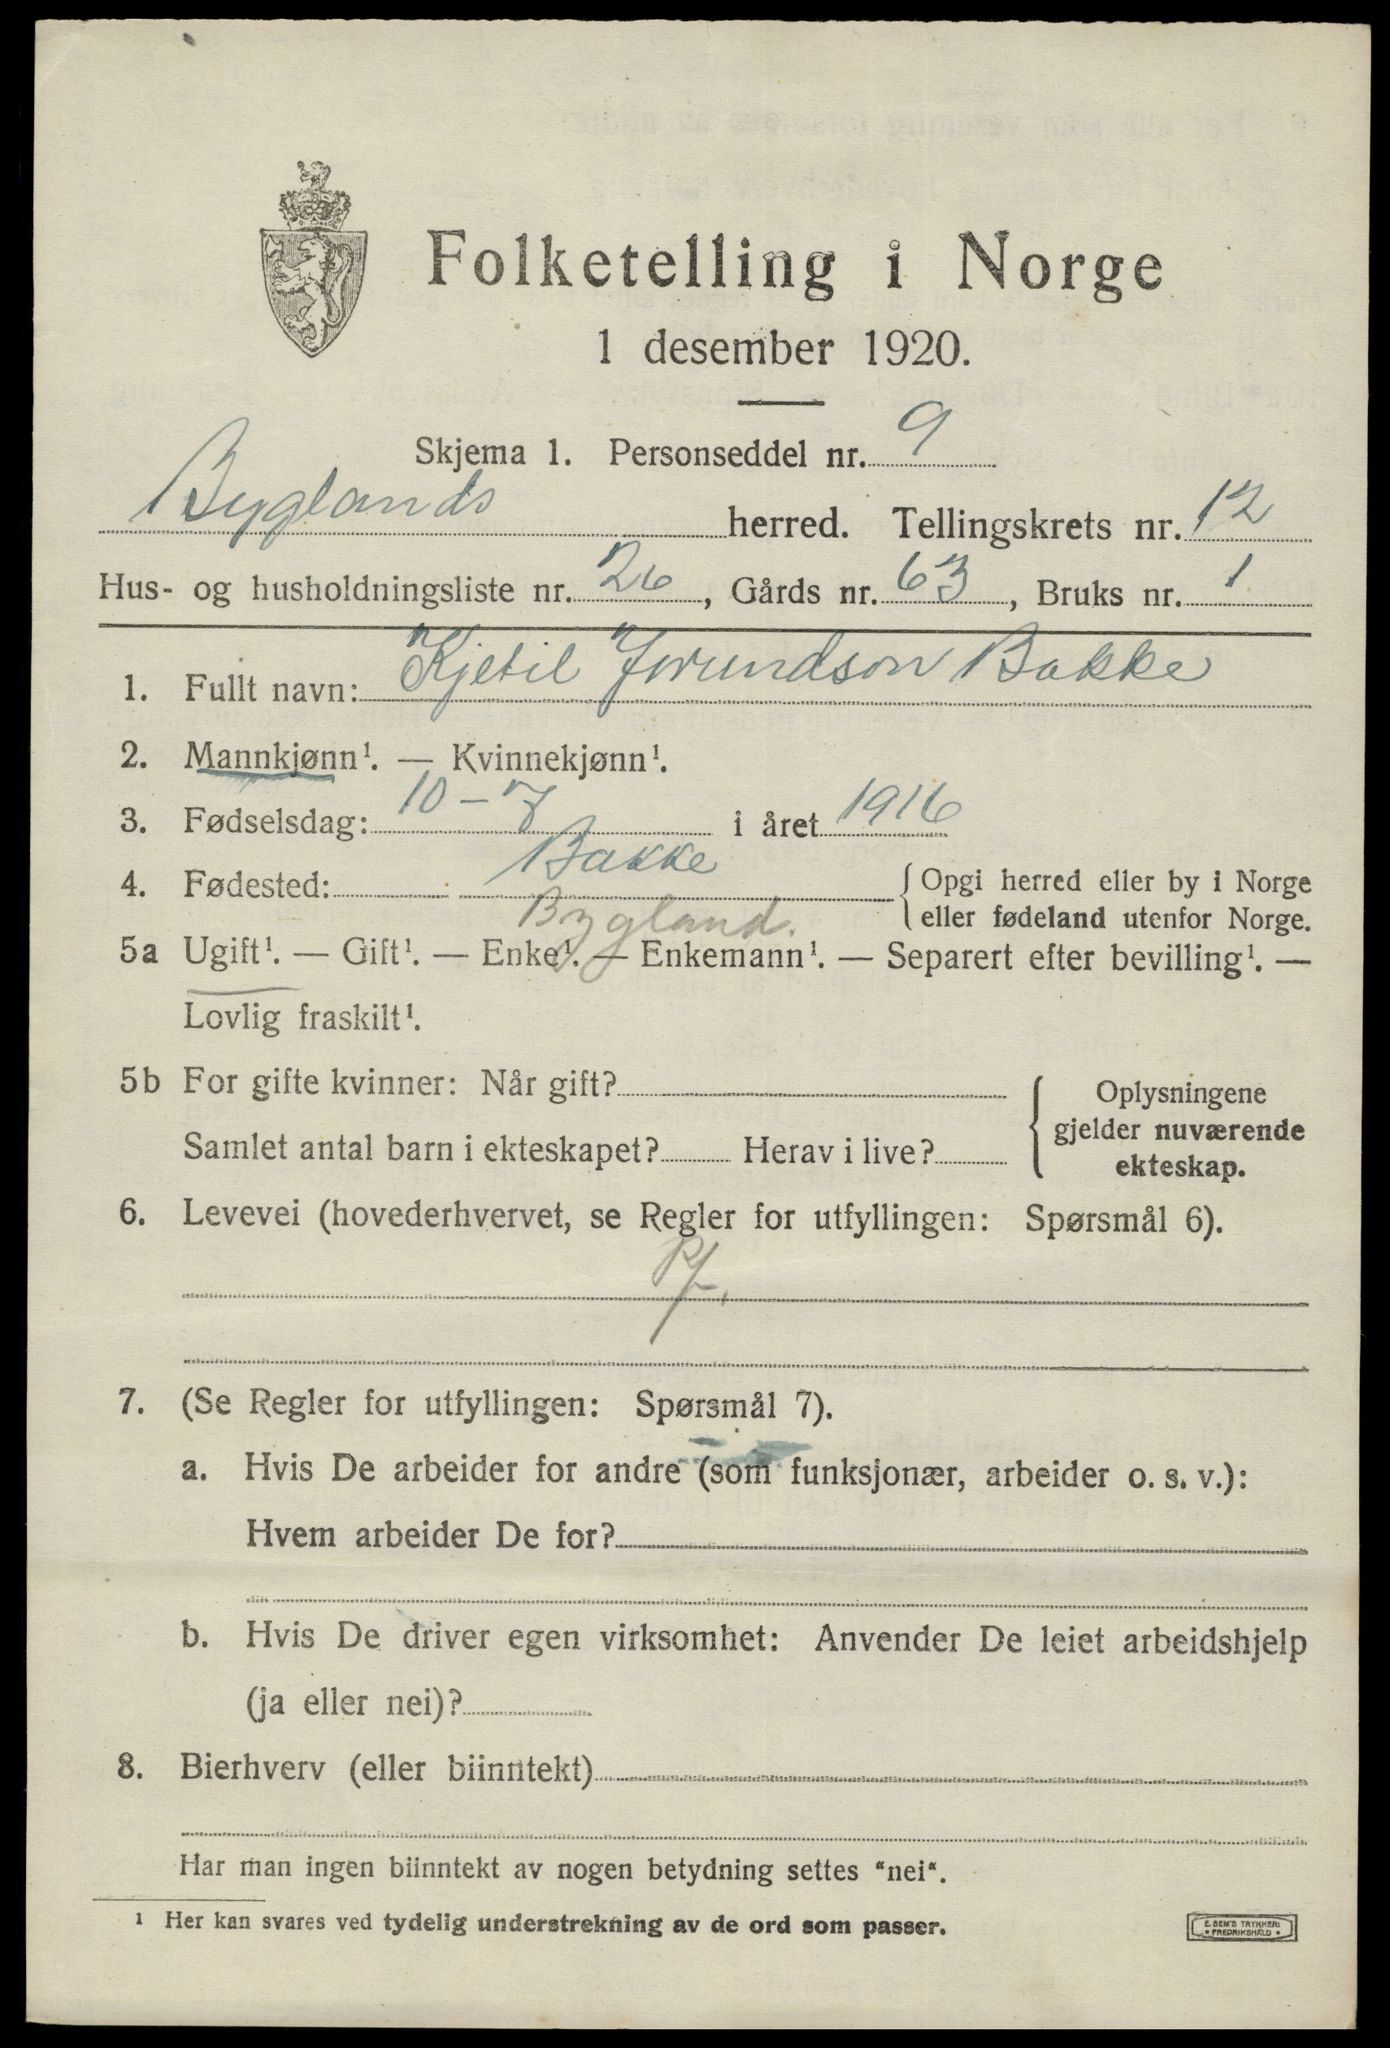 Folketelling i Norge
1 desember 1920.
Skjema 1. Personseddel nr. 9
Byglands herred. Tellingskrets nr. 12
Hus- og husholdningsliste nr. 26, Gårds nr. 63, Bruks nr. 1
1. Fullt navn: Kjetil Jorundson Bakke
2. Mannkjønn¹. — Kvinnekjønn¹.
3. Fødselsdag: 10-7 i året 1916
4. Fødested: Bakke { Opgi herred eller by i Norge
Bygland. eller fødeland utenfor Norge.
5a Ugift¹. — Gift¹. — Enke¹. — Enkemann¹. — Separert efter bevilling¹. —
Lovlig fraskilt¹.
5b For gifte kvinner: Når gift? { Oplysningene
gjelder nuværende
Samlet antal barn i ekteskapet? Herav i live? ekteskap.
6. Levevei (hovederhvervet, se Regler for utfyllingen: Spørsmål 6).
7. (Se Regler for utfyllingen: Spørsmål 7).
a. Hvis De arbeider for andre (som funksjonær, arbeider o. s. v.):
Hvem arbeider De for?
b. Hvis De driver egen virksomhet: Anvender De leiet arbeidshjelp
(ja eller nei)?
8. Bierhverv (eller biinntekt)
Har man ingen biinntekt av nogen betydning settes "nei".
¹ Her kan svares ved tydelig understrekning av de ord som passer.
E. SEM'S TRYKKERI
• FREDRIKSHALD •